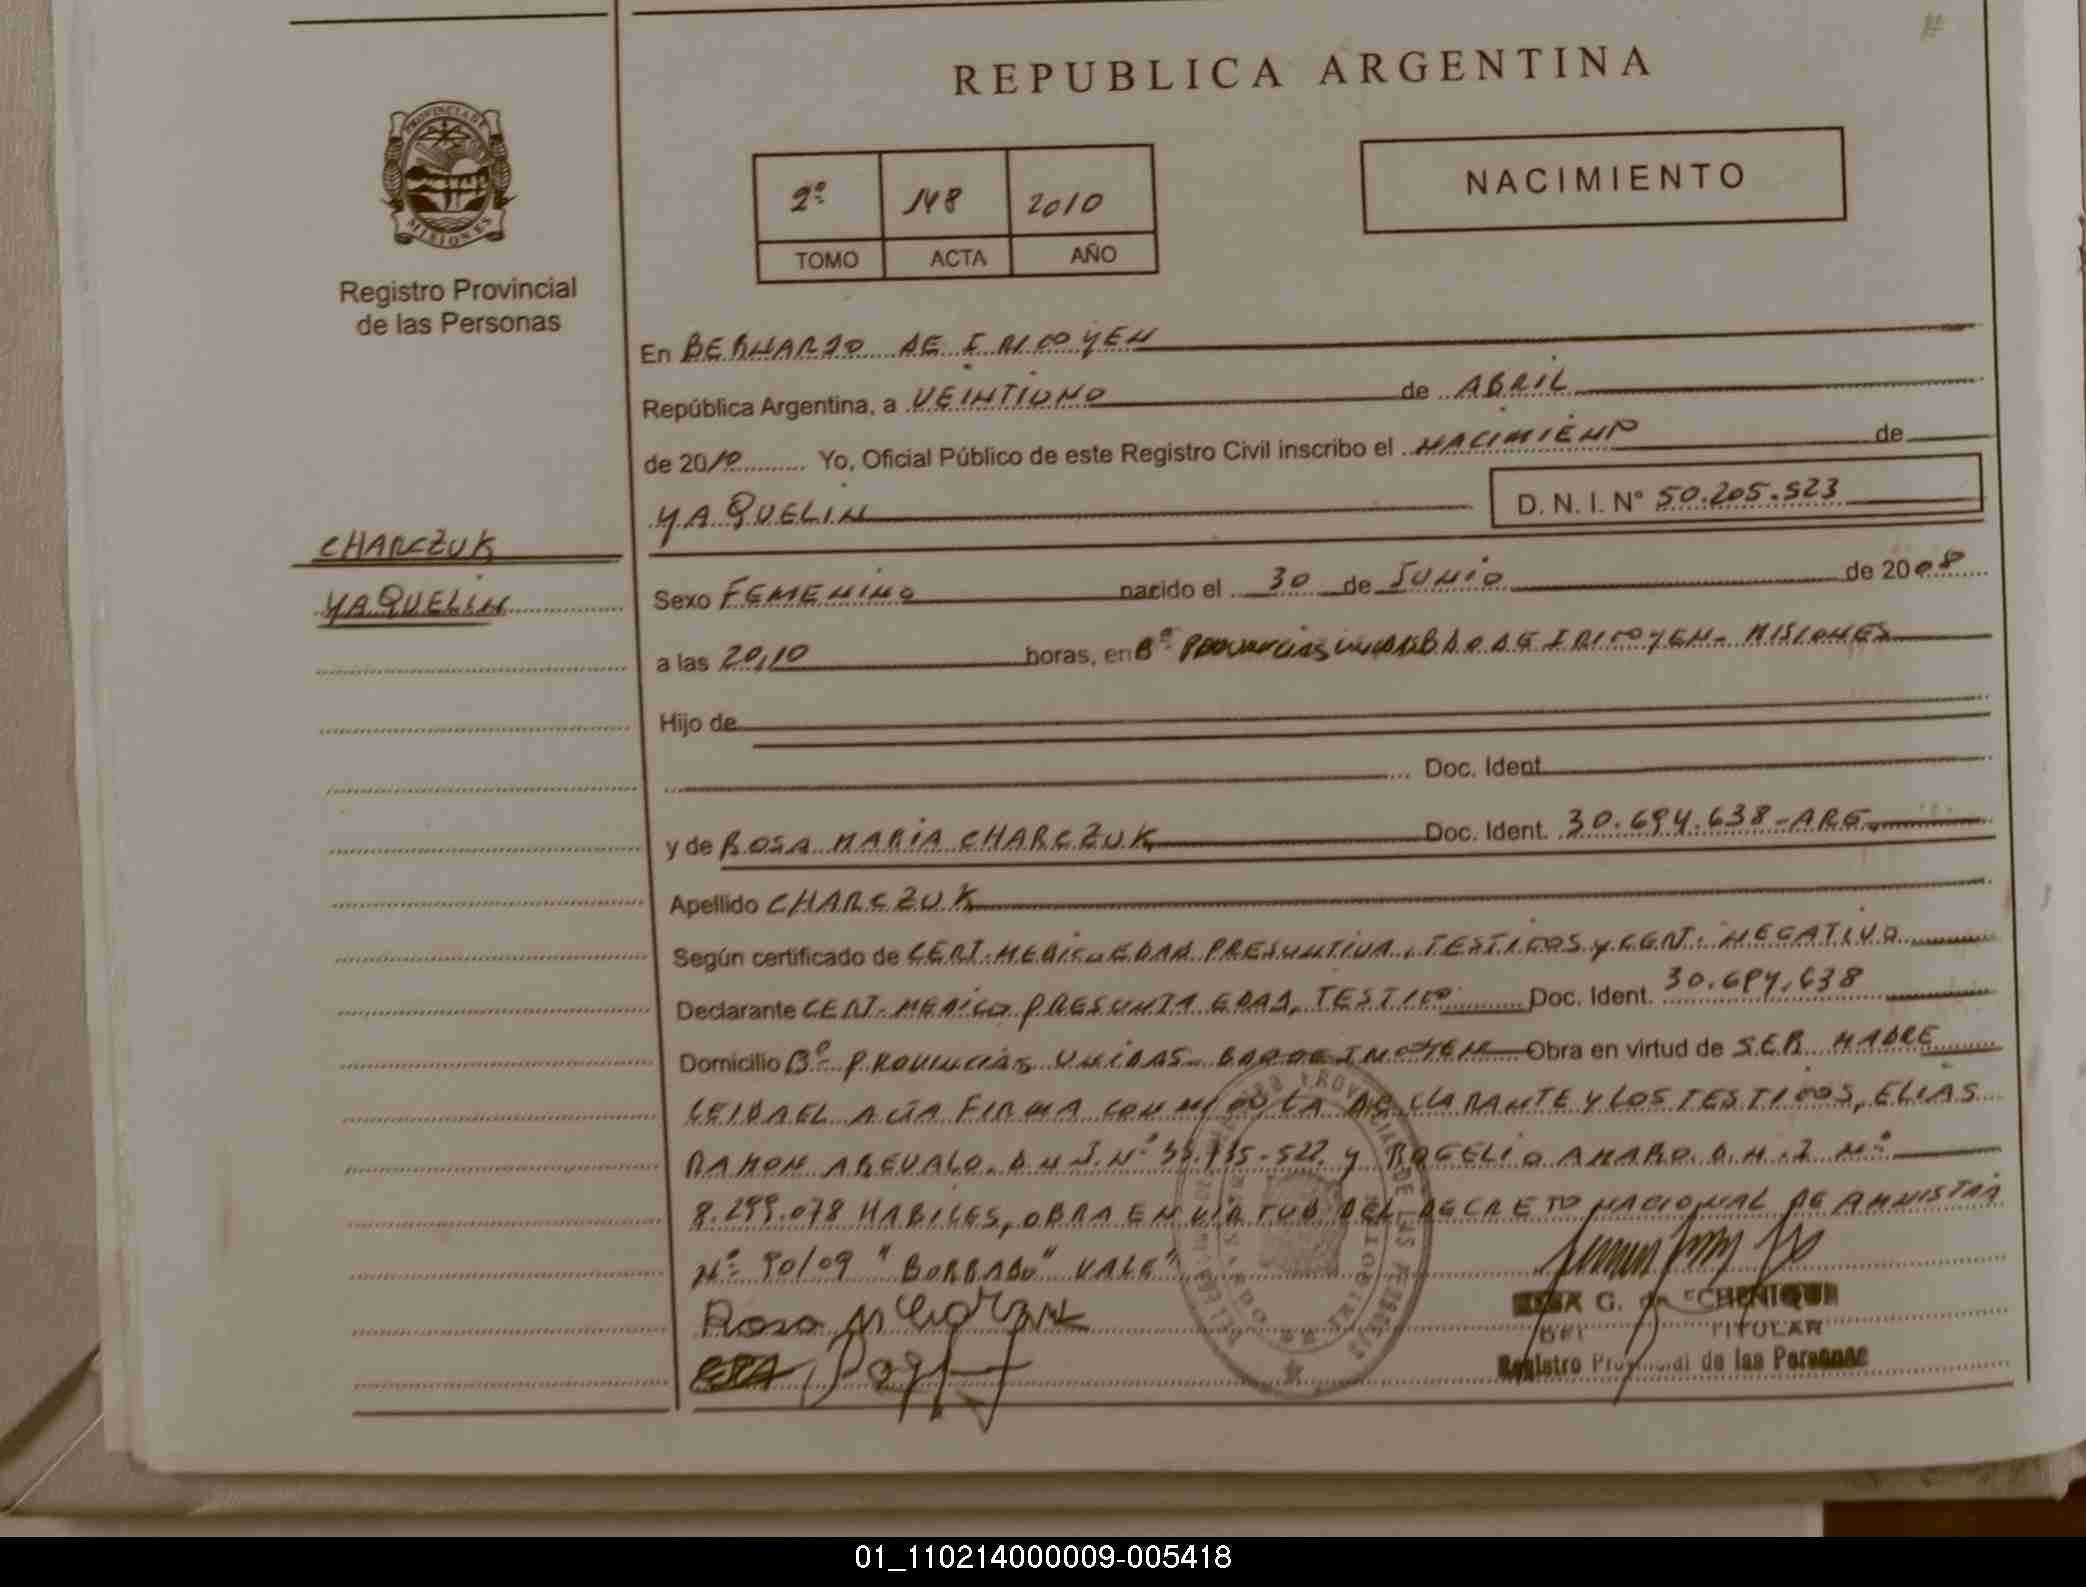 REPUBLICA ARGENTINA
PROVINCIA DE
MISIONES
Registro Provincial
de las Personas
2º 148 2010
TOMO ACTA AÑO
NACIMIENTO
En BERNARDO DE IRIGOYEN
República Argentina, a VEINTIUNO de ABRIL
de 2010 Yo, Oficial Público de este Registro Civil inscribo el NACIMIENTO de
YAQUELIN D. N. I. Nº 50.205.523
CHARCZUK
YAQUELIN
Sexo FEMENINO nacido el 30 de JUNIO de 2008
a las 20,10 horas, en Bº PROVINCIAS UNIDAS BDO DE IRIGOYEN - MISIONES
Hijo de
Doc. Ident.
y de ROSA MARIA CHARCZUK Doc. Ident. 30.694.638-ARG.
Apellido CHARCZUK
Según certificado de CERT. MEDICO EDAD PRESUNTIVA, TESTIGOS Y CERT. NEGATIVO
Declarante CERT. MEDICO PRESUNTA EDAD, TESTIGO Doc. Ident. 30.694.638
Domicilio Bº PROVINCIAS UNIDAS - BDO DE IRIGOYEN Obra en virtud de SER MADRE
LEIDA EL ACTA FIRMA CONMIGO LA DECLARANTE Y LOS TESTIGOS, ELIAS
RAMON AREVALO. D N I. Nº y ROGELIO AMARO. D.N.I Nº
8.299.078 HABILES, OBRA EN VIRTUD DEL DECRETO NACIONAL DE AMNISTIA
Nº 90/09 "BORRADO" VALE"
Rosa M Charczuk
G. de ECHENIQUE
TITULAR
Registro Provincial de las Personas
01_110214000009-005418